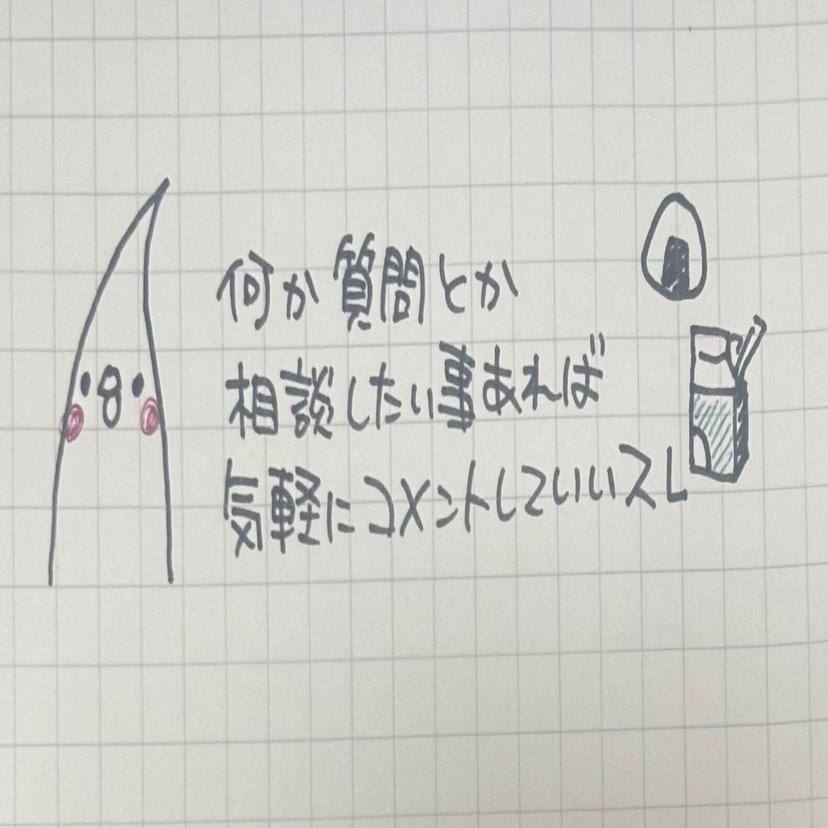 何か質問とか
相談したい事あれば
気軽にコメントしていいスレ